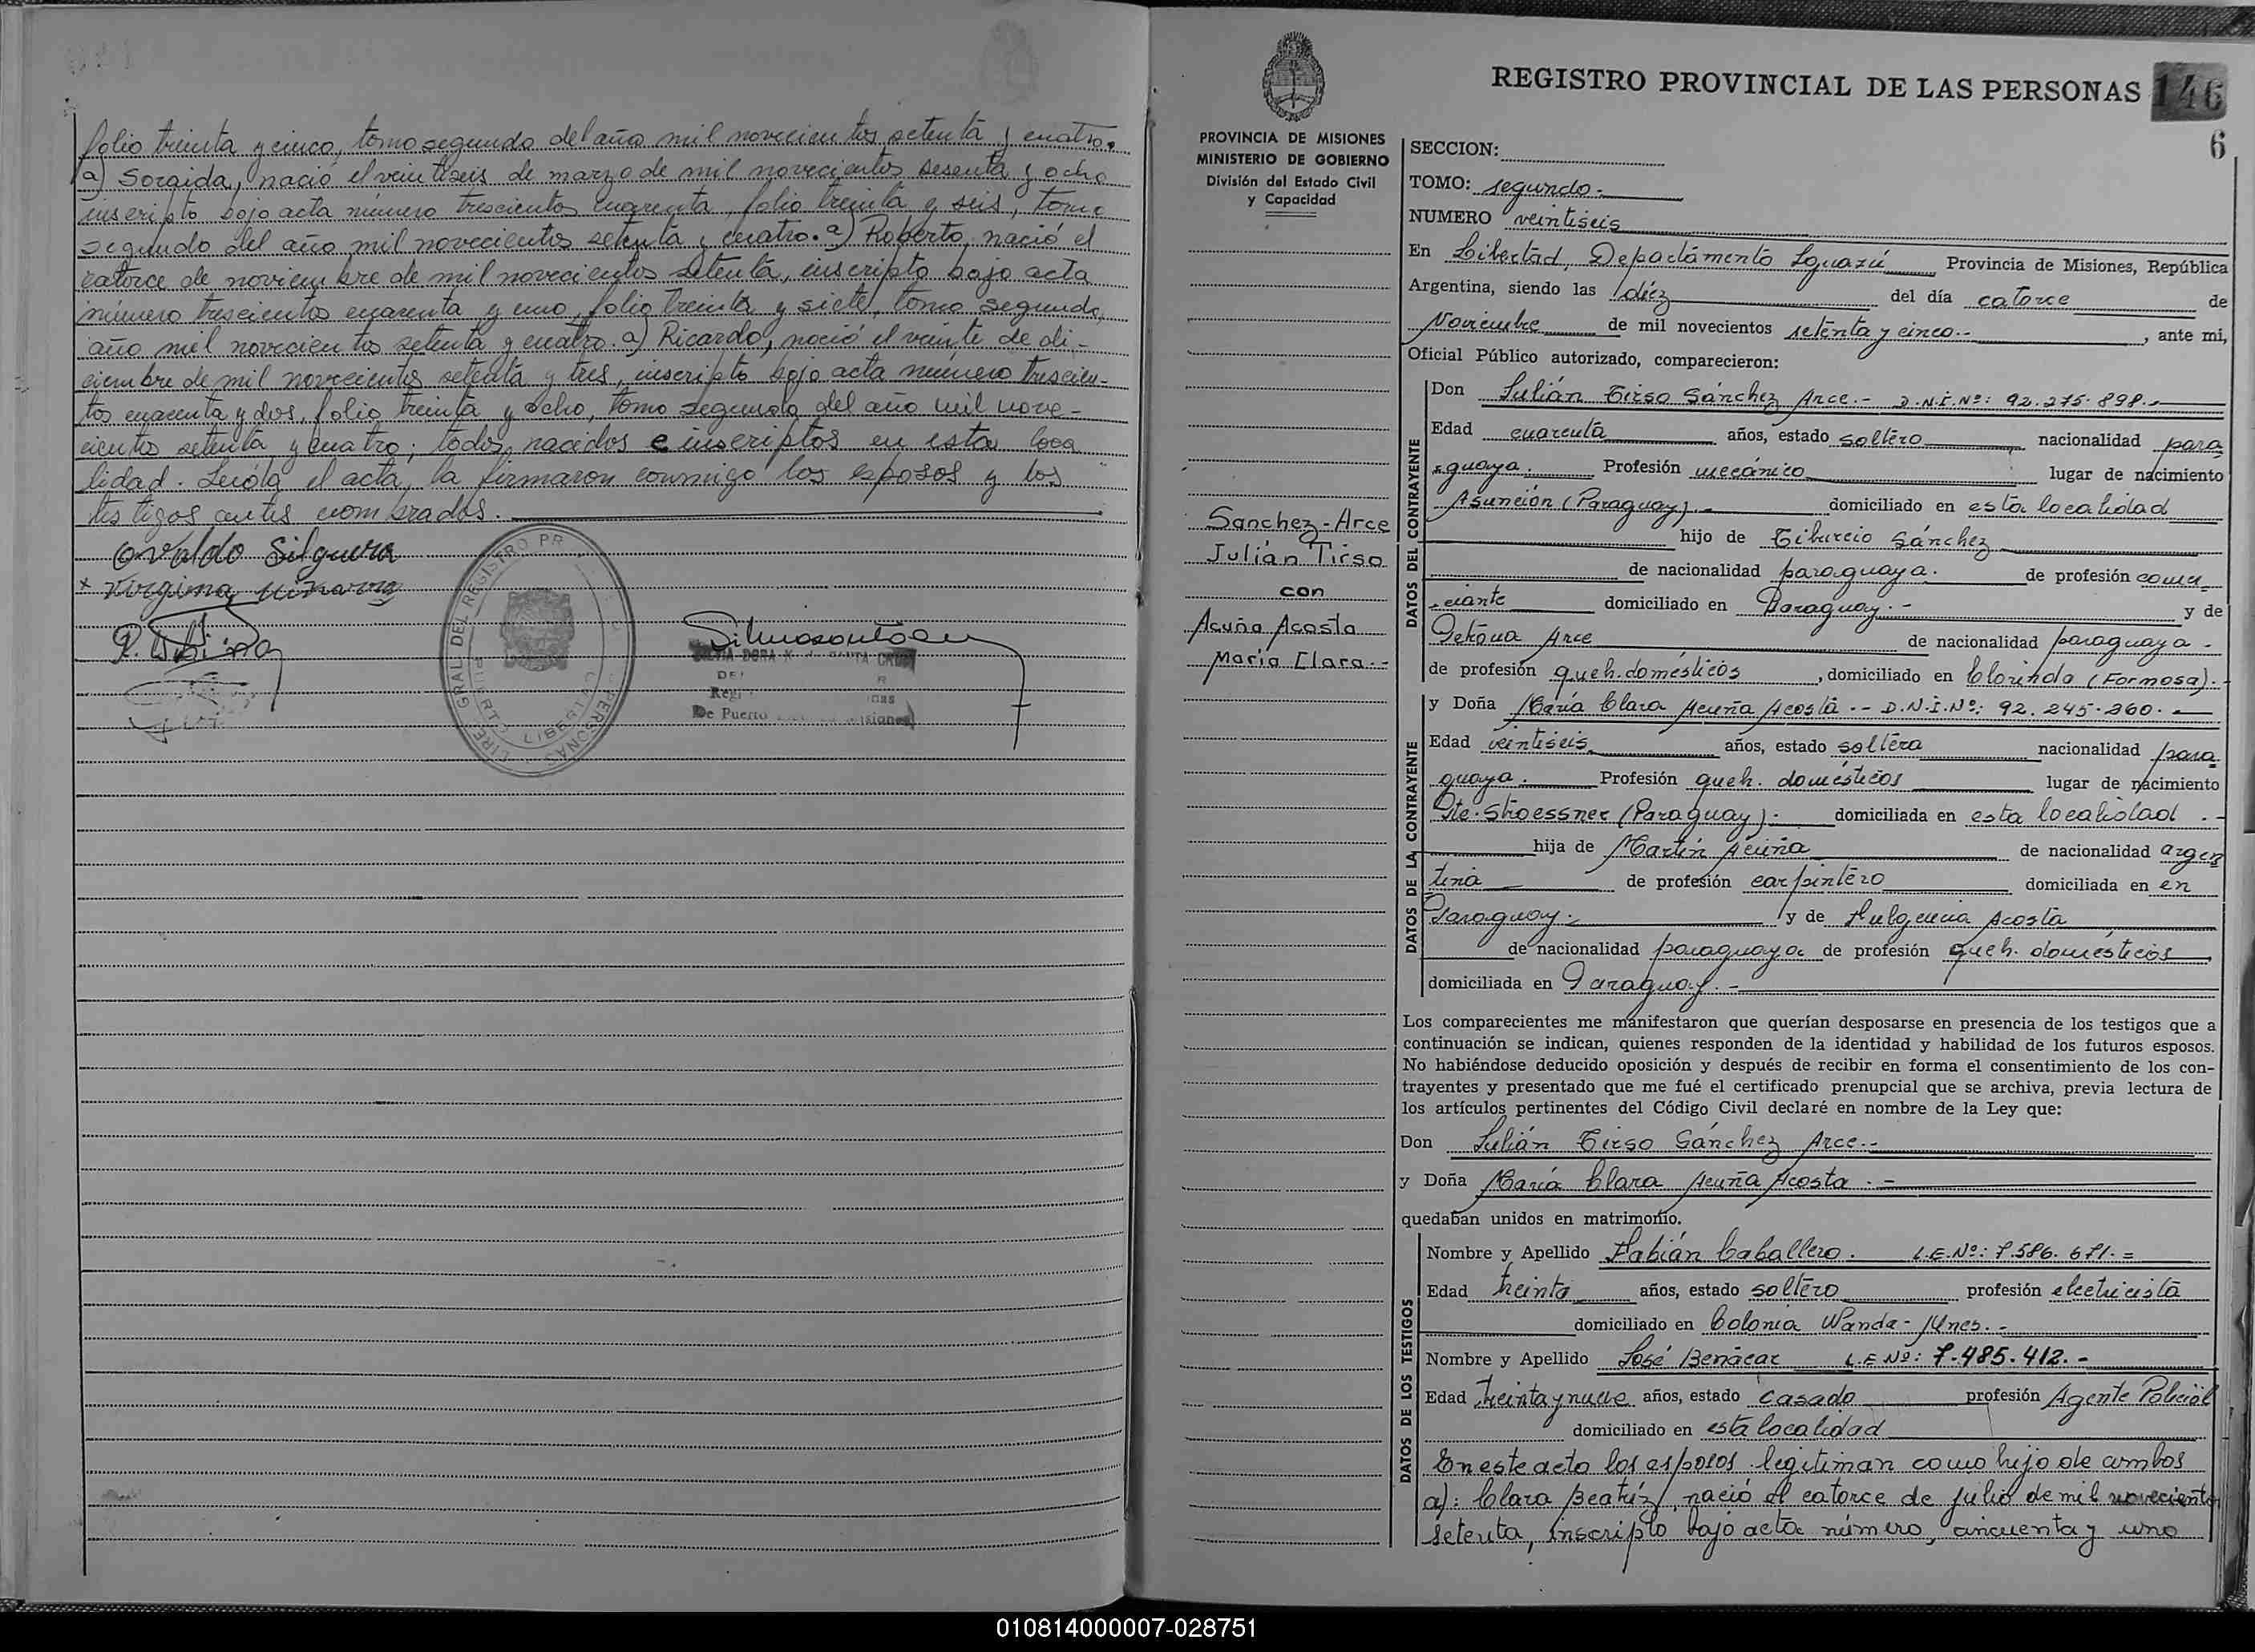 folio treinta y cinco, tomo segundo del año mil novecientos setenta y cuatro.
a) Soraida, nació el veintiseis de marzo de mil novecientos sesenta y ocho
inscripto bajo acta número trescientos cuarenta, folio treinta y seis, tomo
segundo del año mil novecientos setenta y cuatro. a) Roberto, nació el
catorce de noviembre de mil novecientos setenta, inscripto bajo acta
número trescientos cuarenta y uno, folio treinta y siete, tomo segundo,
año mil novecientos setenta y cuatro. a) Ricardo, nació el veinte de di-
ciembre de mil novecientos setenta y tres, inscripto bajo acta número trescien-
tos cuarenta y dos, folio treinta y ocho, tomo segundo del año mil nove-
cientos setenta y cuatro; todos nacidos e inscriptos en esta loca
lidad. Leída el acta, la firmaron conmigo los esposos y los
testigos antes nombrados.
Ovaldo Silguera
x Virginia
DEL REGISTRO PR
PERSONAS
LIBERTAD
De Puerto
REGISTRO PROVINCIAL DE LAS PERSONAS 146
6
PROVINCIA DE MISIONES
MINISTERIO DE GOBIERNO
División del Estado Civil
y Capacidad
Sanchez-Arce
Julián Tirso
con
Acuña Acosta
María Clara.-
SECCION:
TOMO: segundo.-
NUMERO veintiseis
En Libertad, Departamento Iguazú Provincia de Misiones, República
Argentina, siendo las diéz del día catorce de
Noviembre de mil novecientos setenta y cinco.- , ante mi,
Oficial Público autorizado, comparecieron:
DATOS DEL CONTRAYENTE
Don Julián Tirso Sánchez Arce.- D.N.I.Nº: 92.275.898.-
Edad cuarenta años, estado soltero nacionalidad para
guaya. Profesión mecánico lugar de nacimiento
Asunción (Paraguay).- domiciliado en esta localidad
hijo de Tiburcio Sánchez
de nacionalidad paraguaya. de profesión comer
ciante domiciliado en Paraguay.- y de
Petrona Arce de nacionalidad paraguaya.
de profesión queh. domésticos , domiciliado en Clorinda (Formosa).-
DATOS DE LA CONTRAYENTE
y Doña María Clara Acuña Acosta.-- D.N.I.Nº: 92.245.260.-
Edad veintiseis años, estado soltera nacionalidad para
guaya. Profesión queh. domésticos lugar de nacimiento
Pte. Stroessner (Paraguay). domiciliada en esta localidad .-
hija de Martín Acuña de nacionalidad argen
tina de profesión carpintero domiciliada en en
Paraguay.- y de Fulgencia Acosta
de nacionalidad paraguaya de profesión queh. domésticos
domiciliada en Paraguay.-
Los comparecientes me manifestaron que querían desposarse en presencia de los testigos que a
continuación se indican, quienes responden de la identidad y habilidad de los futuros esposos.
No habiéndose deducido oposición y después de recibir en forma el consentimiento de los con-
trayentes y presentado que me fué el certificado prenupcial que se archiva, previa lectura de
los artículos pertinentes del Código Civil declaré en nombre de la Ley que:
Don Julián Tirso Sánchez Arce.-
y Doña María Clara Acuña Acosta.-
quedaban unidos en matrimonio.
DATOS DE LOS TESTIGOS
Nombre y Apellido Fabián Caballero. L.E.Nº: 7.586.671.=
Edad treinta años, estado soltero profesión electricista
domiciliado en Colonia Wanda- Mnes.-
Nombre y Apellido José Benácar L.E Nº: 7.485.412.-
Edad treinta y nueve años, estado casado profesión Agente Policial
domiciliado en esta localidad
En este acto los esposos legitiman como hijo de ambos
a): Clara Beatríz, nació el catorce de julio de mil novecientos
setenta, inscripto bajo acta número, cincuenta y uno
010814000007-028751